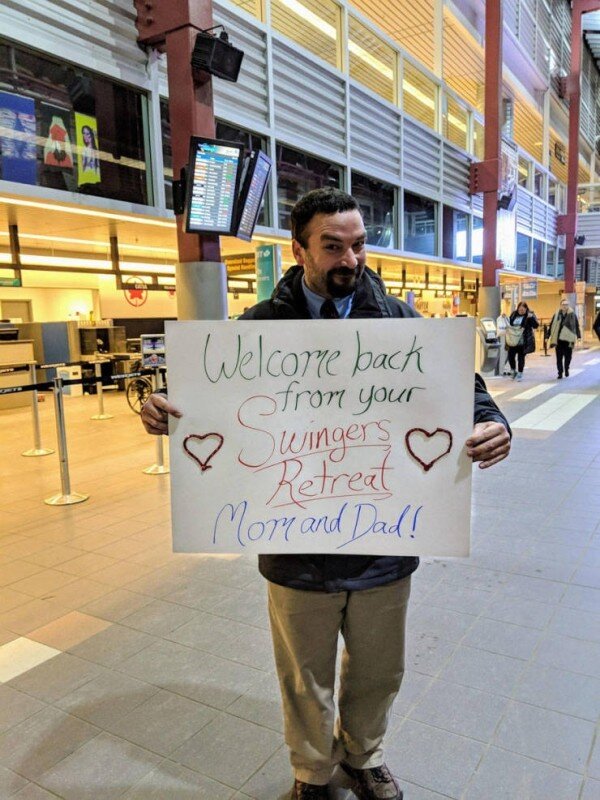 Welcome back
from your
Swingers
Retreat
Mom and Dad!